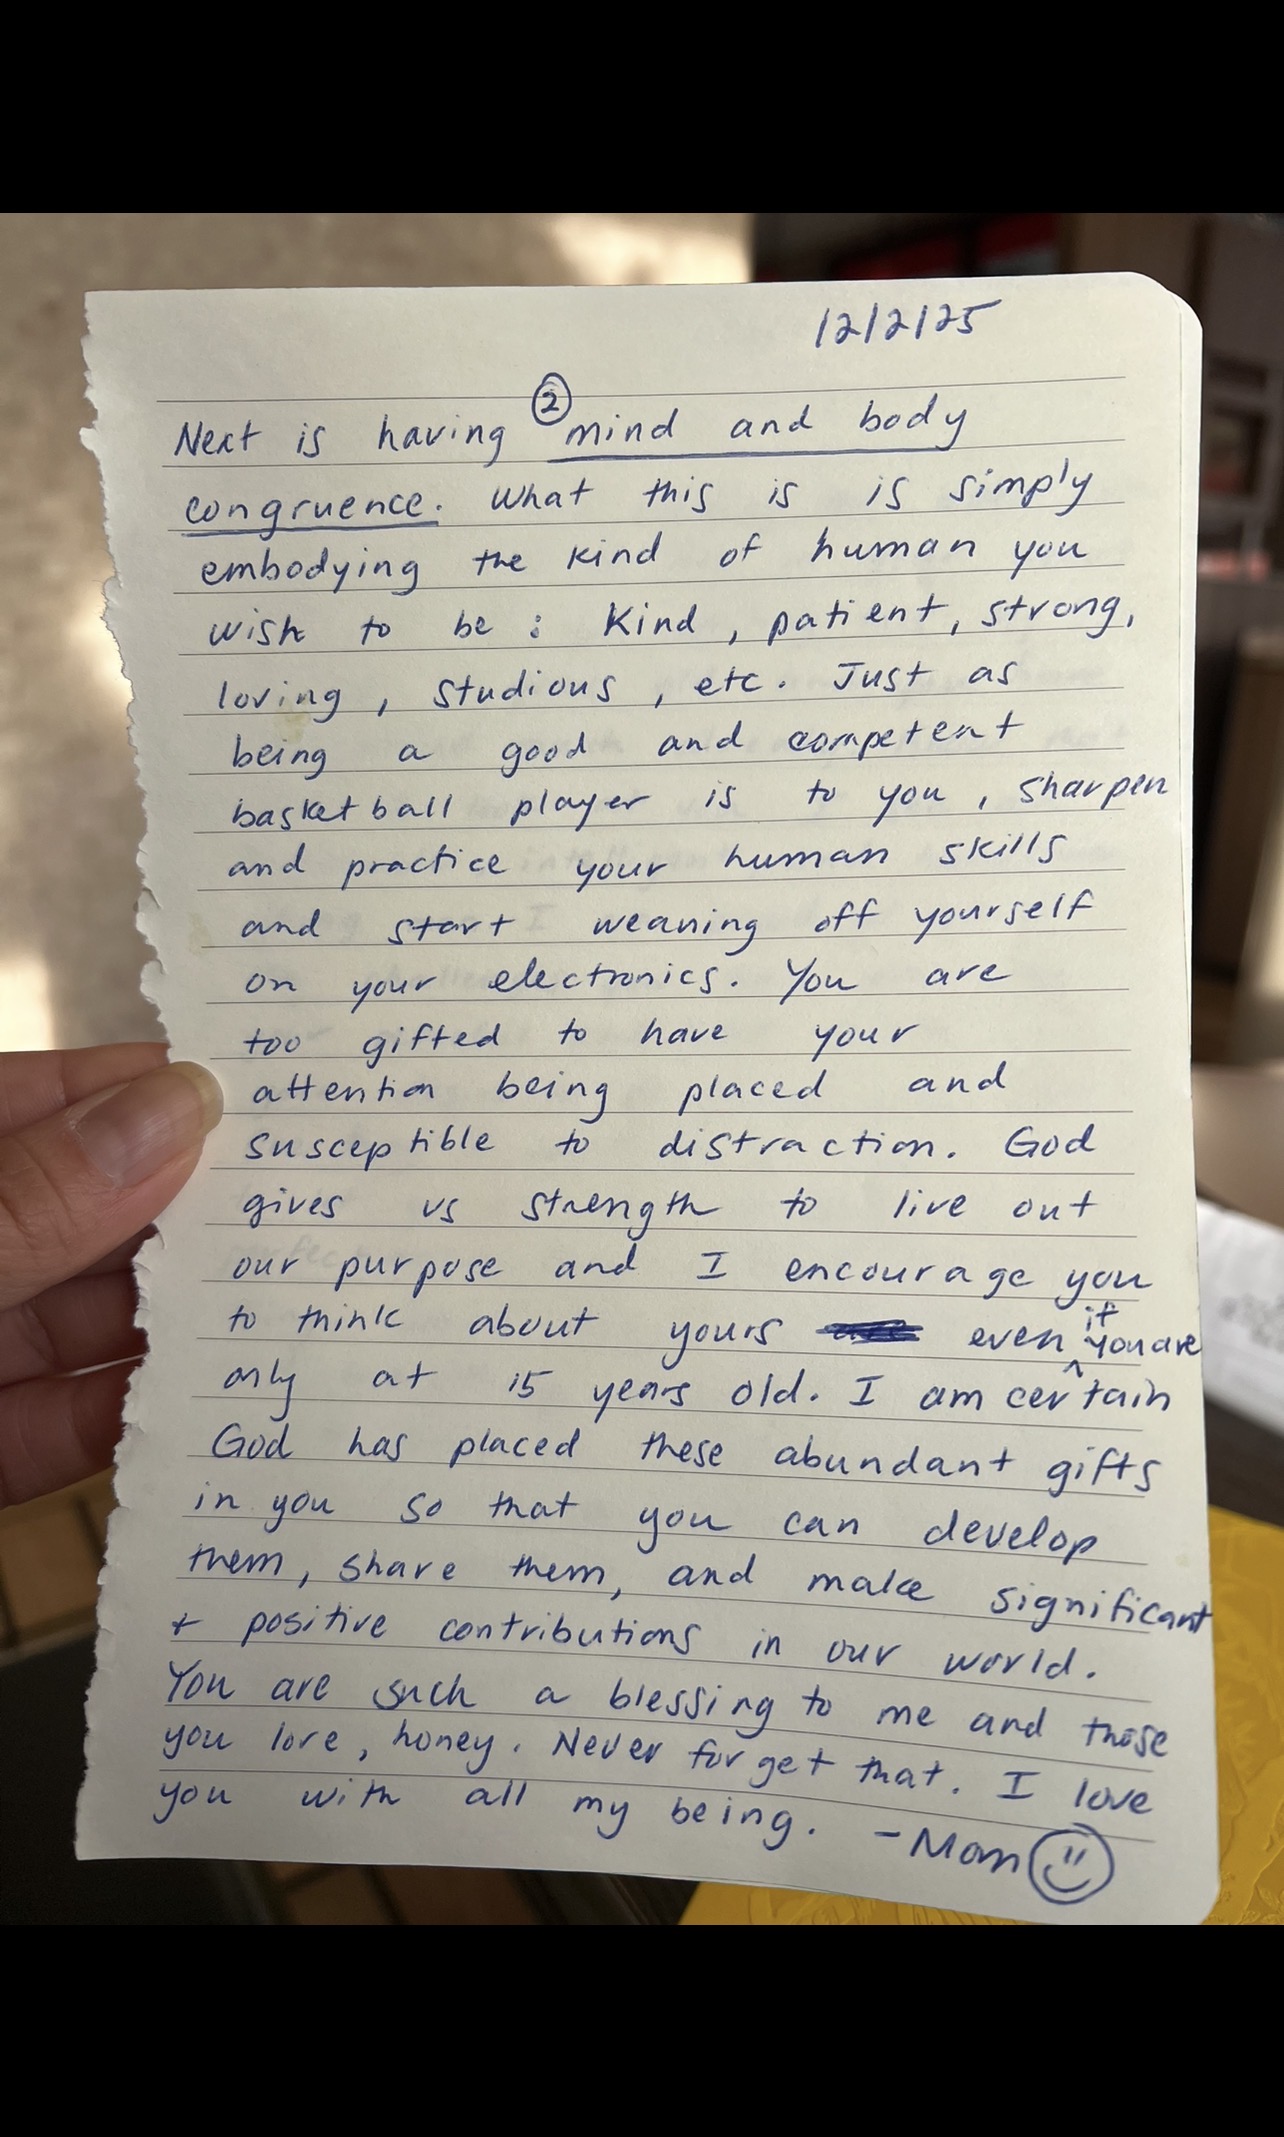 12/2/25
Next is having ② mind and body
congruence. What this is is simply
embodying the kind of human you
wish to be : Kind, patient, strong,
loving, studious, etc. Just as
being a good and competent
basketball player is to you, sharpen
and practice your human skills
and start weaning off yourself
on your electronics. You are
too gifted to have your
attention being placed and
susceptible to distraction. God
gives us strength to live out
our purpose and I encourage you
to think about yours even if you are
only at 15 years old. I am certain
God has placed these abundant gifts
in you so that you can develop
them, share them, and make significant
+ positive contributions in our world.
You are such a blessing to me and those
you love, honey. Never forget that. I love
you with all my being. -Mom